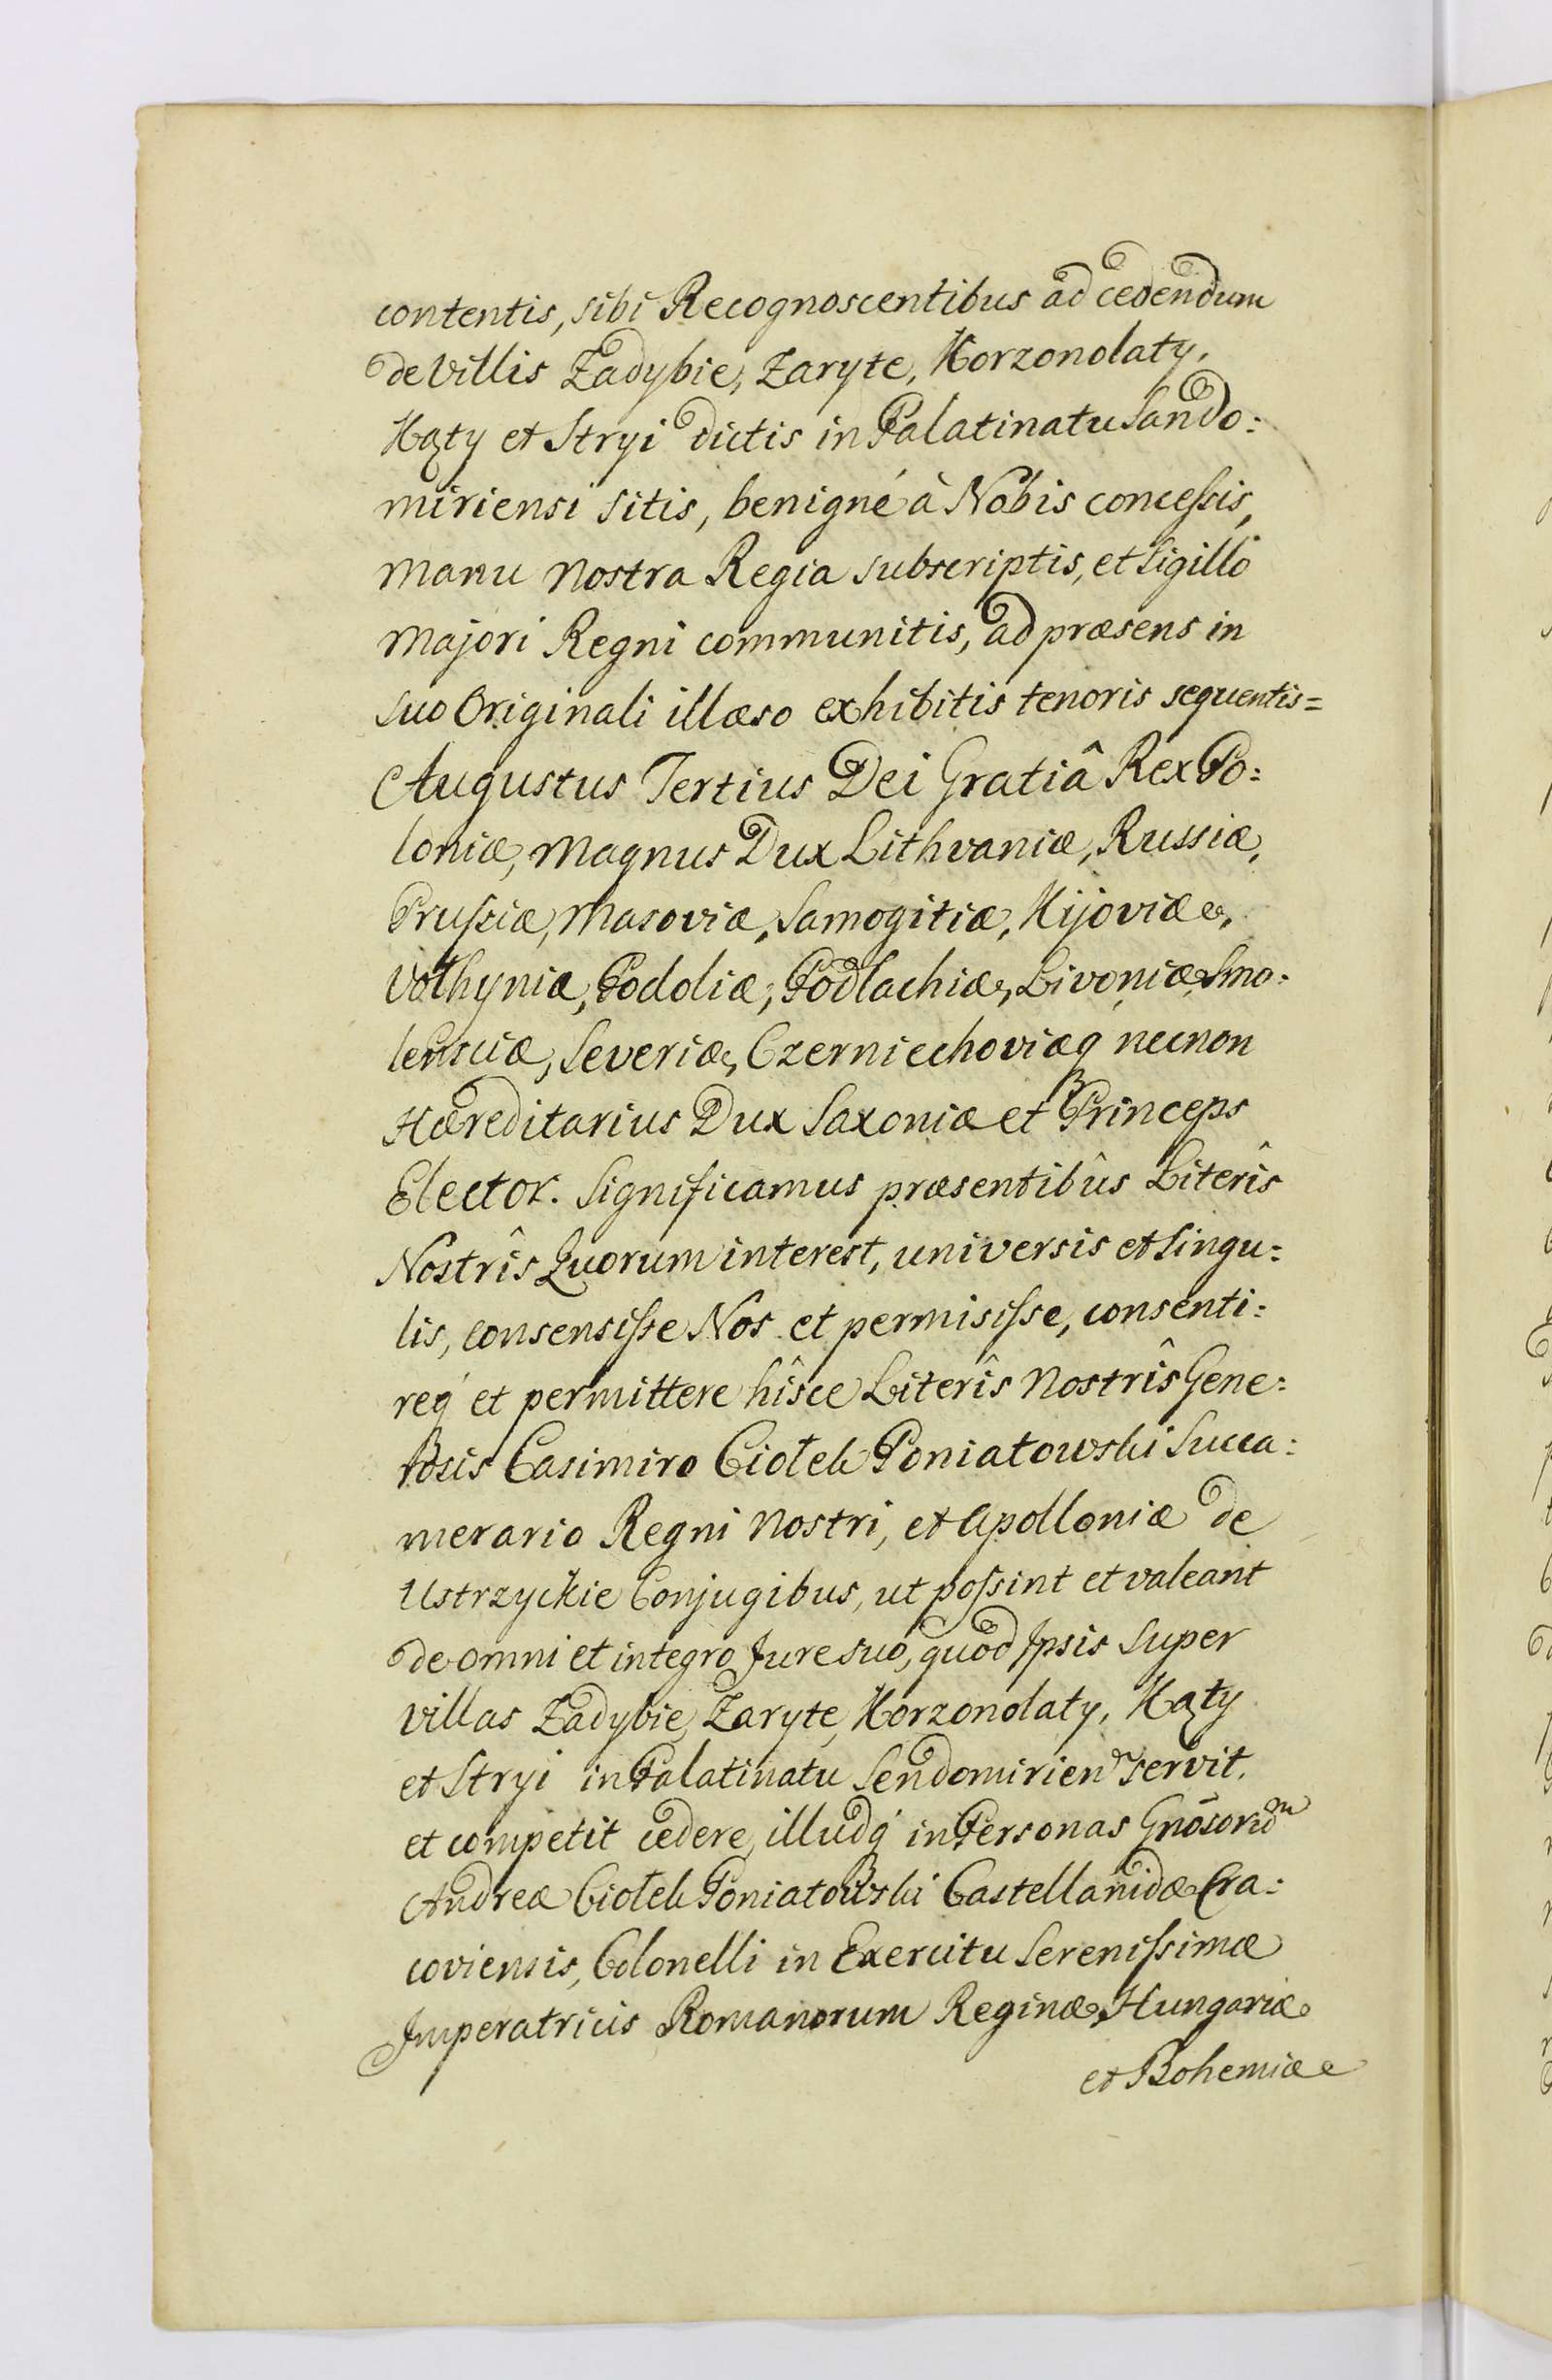 contentis, sibi Recognoscentibus ad cedendum
de Villis Zadybie, Zaryte, Korzonolaty,
Kąty et Stryi dictis in Palatinatu Sando:
miriensi sitis, benigné à Nobis conceſsis,
manu nostra Regia subscriptis, et Sigillo
Majori Regni communitis, ad præsens in
suo Originali illæso exhibitis tenoris sequentis=
Augustus Tertius Dei Gratiâ Rex Po:
loniæ, Magnus Dux Lithvaniæ, Russiæ,
Pruſsiæ, Masoviæ, Samogitiæ, Kijoviæ,
Volhyniæ, Podoliæ, Podlachiæ, Livoniæ, Smo:
lensciæ, Severiæ, Czerniechoviæq necnon
Hæreditarius Dux Saxoniæ et Princeps
Elector. Significamus præsentibûs Literîs
Nostrîs Quorum interest, universis et singu:
lis, consensiſse Nos et permisiſse, consenti:
req́ et permittere hîsce Literîs Nostrîs Gene:
rosis Casimiro Ciołek Poniatowski Succa:
merario Regni Nostri, et Apolloniæ de
Ustrzyckie Conjugibus, ut poſsint et valeant
de omni et integro Jure suo, quod Ipsis super
Villas Zadybie, Zaryte, Korzonolaty, Kąty
et Stryi in Palatinatu Sendomirien servit,
et competit cedere, illudq́ in Personas Gnōsorum
Andreæ Ciołek Poniatowski Castellanidæ Cra:
coviensis, Colonelli in Exercitu Sereniſsimæ
Imperatricis Romanorum Reginæ, Hungariæ
et Bohemiæ